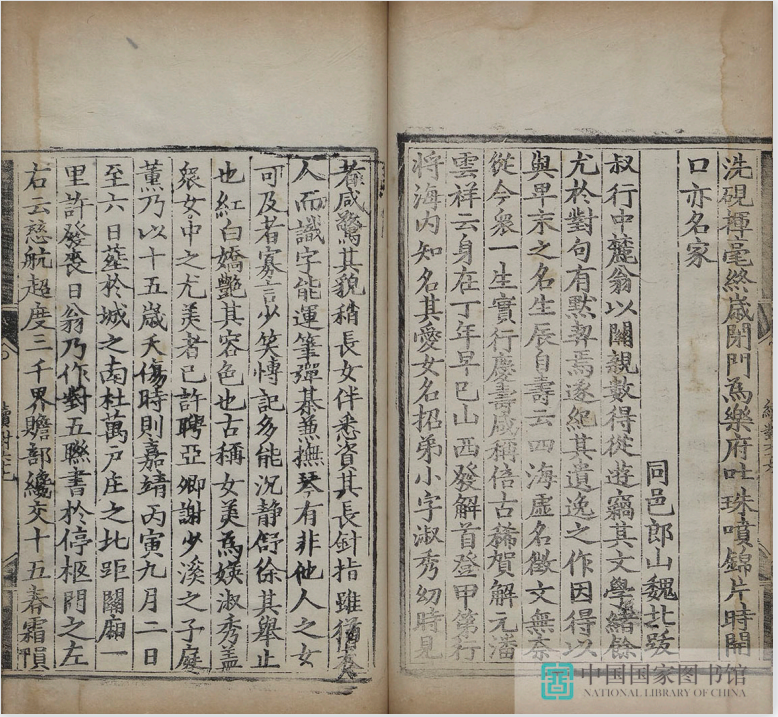 洗硯揮毫終歳閉門為樂府吐珠噴錦片時開
口亦名家
同邑郎山魏北跋
叔行中麓翁以關親數得從遊竊其文學緒餘
尤於對句有默契焉遂紀其遺逸之作因得以
與卑末之名生辰自壽云四海虛名徵文無奈
從今眾一生實行慶壽咸稱倍古稀賀解元潘
雲祥云身在丁年早已山西發解首登甲第行
將海内知名其愛女名招弟小字淑秀幼時見
者咸驚其貌稍長女伴悉資其長針指雖
人而識字能運筆彈棊兼撫琴有非他人之女
可及者寡言少笑慱記多能況静舒徐其舉止
也紅白嬌艷其容色也古稱女美為媖淑秀盖
衆女中之尤美者已許聘亞卿謝少溪之子庭
薰乃以十五歳夭傷時則嘉靖丙寅九月二日
至六日塟於城之南杜萬户庄之北距關廟一
里許發喪日翁乃作對五聯書於停柩門之左
右云慈航超度三千界贍部纔交十五春霜隕
中国国家图书馆
NATIONAL LIBRARY OF CHINA